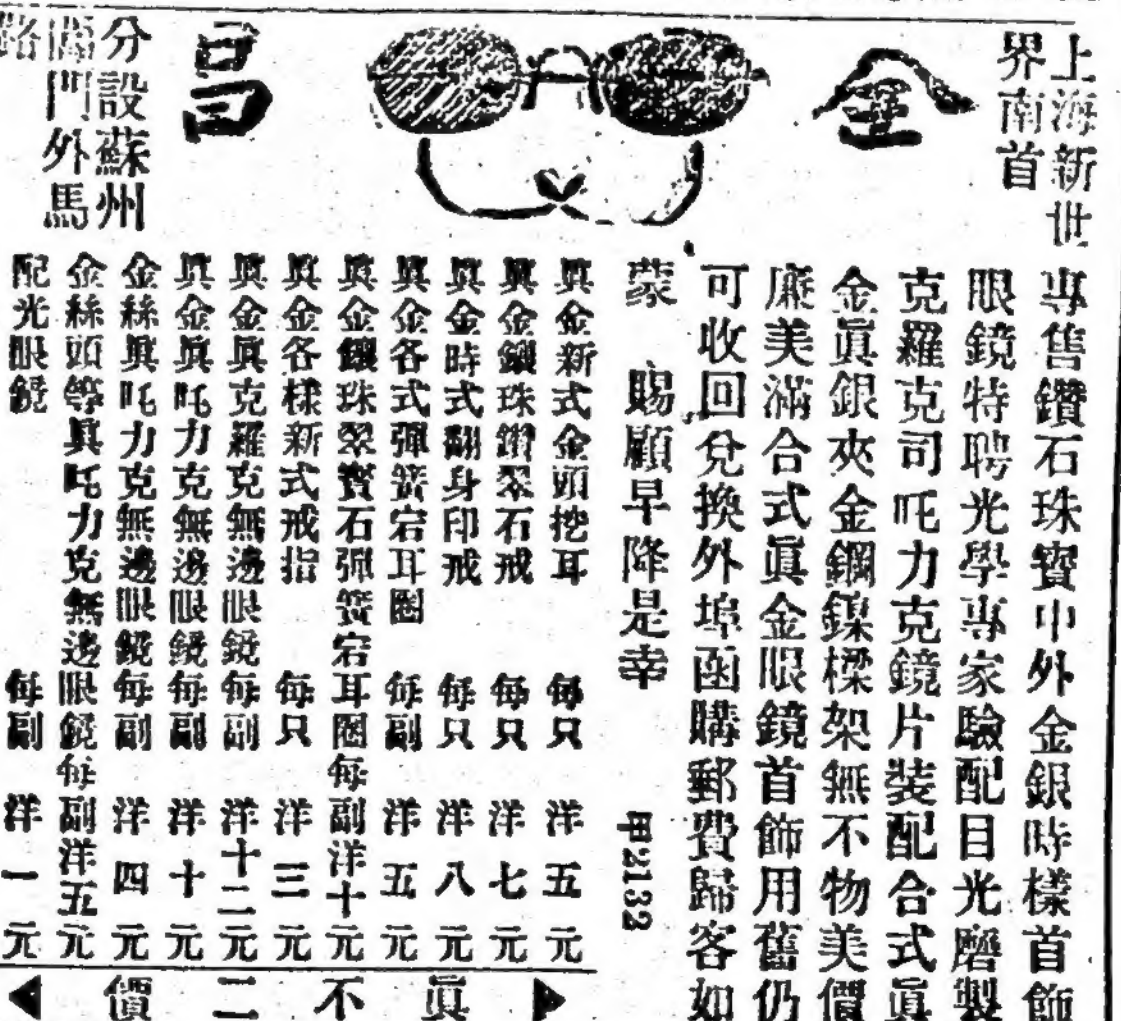 上海新世
界南首
金
昌
分設蘇州
閶門外馬
路
專售鑽石珠寶中外金銀時樣首飾
眼鏡特聘光學專家驗配目光磨製
克羅克司吒力克鏡片裝配合式眞
金眞銀夾金鋼鎳樑架無不物美價
廉美滿合式眞金眼鏡首飾用舊仍
可收回兌換外埠函購郵費歸客如
蒙 賜顧早降是幸
甲2132
眞金新式金頭挖耳 每只 洋五元
眞金鑲珠鑽翠石戒 每只 洋七元
眞金時式翻身印戒 每只 洋八元
眞金各式彈簧宕耳圈 每副 洋五元
眞金鑲珠翠寶石彈簧宕耳圈每副洋十元
眞金各樣新式戒指 每只 洋三元
眞金眞克羅克無邊眼鏡 每副 洋十二元
眞金眞吒力克無邊眼鏡 每副 洋十元
金絲眞吒力克無邊眼鏡 每副 洋四元
金絲頭等眞吒力克無邊眼鏡每副洋五元
配光眼鏡 每副 洋一元
眞不二價